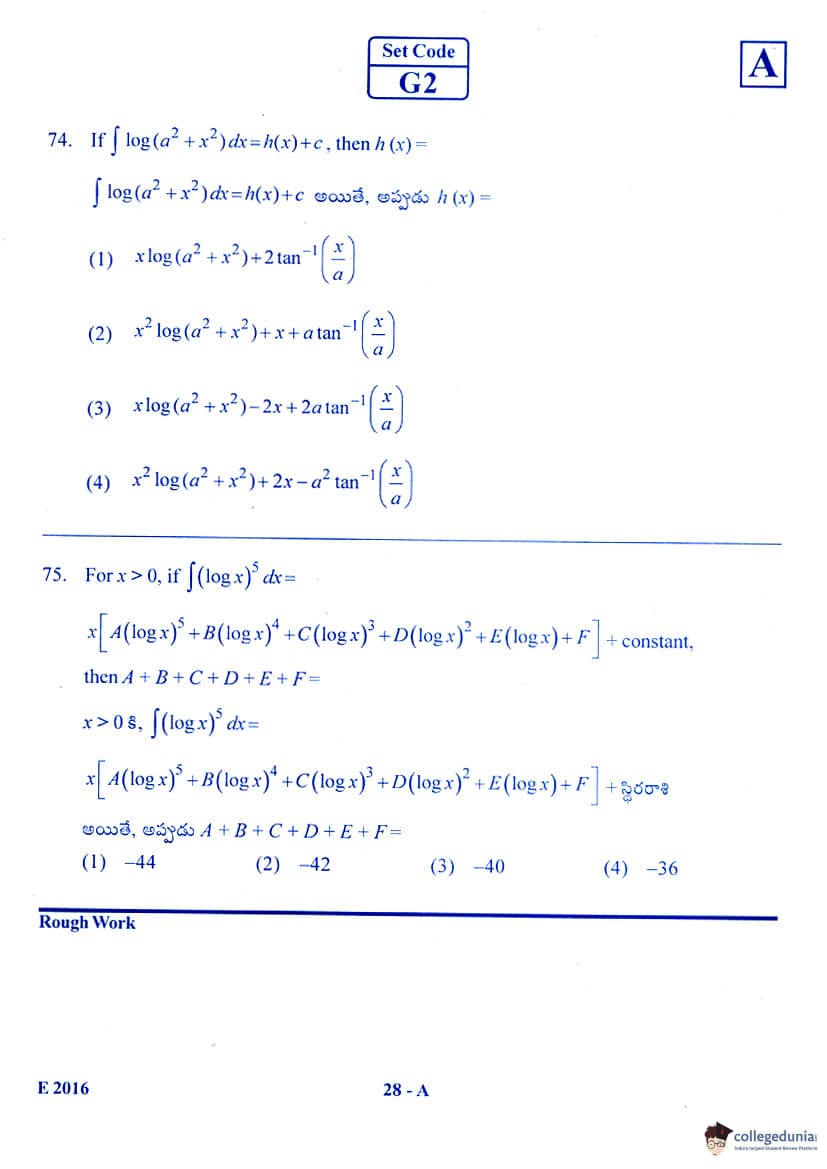 Set Code
G2
A
74. If ∫ log(a² + x²) dx = h(x) + c , then h (x) =
∫ log(a² + x²) dx = h(x) + c అయితే, అప్పుడు h (x) =
(1) x log(a² + x²) + 2 tan⁻¹(x/a)
(2) x² log(a² + x²) + x + a tan⁻¹(x/a)
(3) x log(a² + x²) – 2x + 2a tan⁻¹(x/a)
(4) x² log(a² + x²) + 2x – a² tan⁻¹(x/a)
75. For x > 0, if ∫(log x)⁵ dx =
x[A(log x)⁵ + B(log x)⁴ + C(log x)³ + D(log x)² + E(log x) + F] + constant,
then A + B + C + D + E + F =
x > 0 కి, ∫(log x)⁵ dx =
x[A(log x)⁵ + B(log x)⁴ + C(log x)³ + D(log x)² + E(log x) + F] + స్థిరరాశి
అయితే, అప్పుడు A + B + C + D + E + F =
(1) –44 (2) –42 (3) –40 (4) –36
Rough Work
E 2016
28 - A
collegedunia
India's largest Student Review Platform